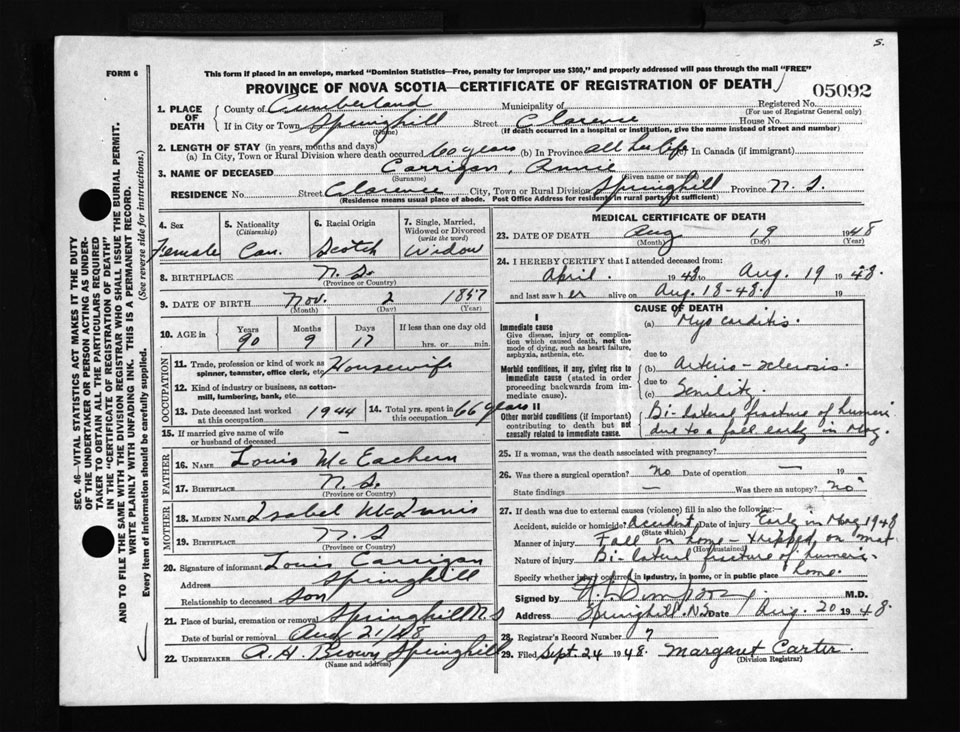 S.
FORM 6
This form if placed in an envelope, marked "Dominion Statistics—Free, penalty for improper use $300," and properly addressed will pass through the mail "FREE"
PROVINCE OF NOVA SCOTIA—CERTIFICATE OF REGISTRATION OF DEATH
05092
1. PLACE OF DEATH
County of Cumberland Municipality of Registered No.
(For use of Registrar General only)
If in City or Town Springhill Street Clarence House No.
(Name) (If death occurred in a hospital or institution, give the name instead of street and number)
2. LENGTH OF STAY (in years, months and days)
(a) In City, Town or Rural Division where death occurred 60 years (b) In Province all her life (c) In Canada (if immigrant)
3. NAME OF DECEASED Carrigan, Annie
(Surname) (Given name or names)
RESIDENCE No. Street Clarence City, Town or Rural Division Springhill Province N. S.
(Residence means usual place of abode. Post Office Address for residents in rural parts not sufficient)
4. Sex
Female
5. Nationality (Citizenship)
Can.
6. Racial Origin
Scotch
7. Single, Married, Widowed or Divorced (write the word)
Widow
8. BIRTHPLACE N. S.
(Province or Country)
9. DATE OF BIRTH Nov. 2 1857
(Month) (Day) (Year)
10. AGE in Years Months Days If less than one day old
90 9 17 hrs. or min.
OCCUPATION
11. Trade, profession or kind of work as spinner, teamster, office clerk, etc. Housewife
12. Kind of industry or business, as cotton-mill, lumbering, bank, etc.
13. Date deceased last worked at this occupation 1944
14. Total yrs. spent in this occupation 66 years
15. If married give name of wife or husband of deceased —
FATHER
16. NAME Louis McEachern
17. BIRTHPLACE N. S.
(Province or Country)
MOTHER
18. MAIDEN NAME Isabel
19. BIRTHPLACE N. S
(Province or Country)
20. Signature of informant Louis Carrigan
Address Springhill
Relationship to deceased son
21. Place of burial, cremation or removal Springhill N.S
Date of burial or removal Aug 21/48
22. UNDERTAKER A. H. Brown Springhill
(Name and address)
MEDICAL CERTIFICATE OF DEATH
23. DATE OF DEATH Aug 19 1948
(Month) (Day) (Year)
24. I HEREBY CERTIFY that I attended deceased from:
April. 1948 to Aug. 19 1948.
and last saw her alive on Aug. 18-48. 19
CAUSE OF DEATH
I
Immediate cause
Give disease, injury or complication which caused death, not the mode of dying, such as heart failure, asphyxia, asthenia, etc.
(a) Myocarditis.
due to
Morbid conditions, if any, giving rise to immediate cause (stated in order proceeding backwards from immediate cause).
(b) Arterio-sclerosis
due to
(c) Senility
II
Other morbid conditions (if important) contributing to death but not causally related to immediate cause.
Bi-lateral fracture of humeri
due to a fall early in May.
25. If a woman, was the death associated with pregnancy?
26. Was there a surgical operation? No Date of operation — 19
State findings — Was there an autopsy? "no"
27. If death was due to external causes (violence) fill in also the following:—
Accident, suicide or homicide? Accident Date of injury Early in May 1948
(State which)
Manner of injury Fall in home - tripped on mat
(How sustained)
Nature of injury Bi-lateral fracture of humeri.
Specify whether injury occurred in industry, in home, or in public place home.
Signed by M.D.
Address Springhill. N.S. Date Aug. 20 1948.
28. Registrar's Record Number 7
29. Filed Sept. 24 1948. Margaret Carter.
(Division Registrar)
SEC. 46—VITAL STATISTICS ACT MAKES IT THE DUTY
OF THE UNDERTAKER OR PERSON ACTING AS UNDER-
TAKER TO OBTAIN ALL THE PARTICULARS REQUIRED
IN THE "CERTIFICATE OF REGISTRATION OF DEATH"
AND TO FILE THE SAME WITH THE DIVISION REGISTRAR WHO SHALL ISSUE THE BURIAL PERMIT.
WRITE PLAINLY WITH UNFADING INK. THIS IS A PERMANENT RECORD.
Every item of Information should be carefully supplied. (See reverse side for instructions.)